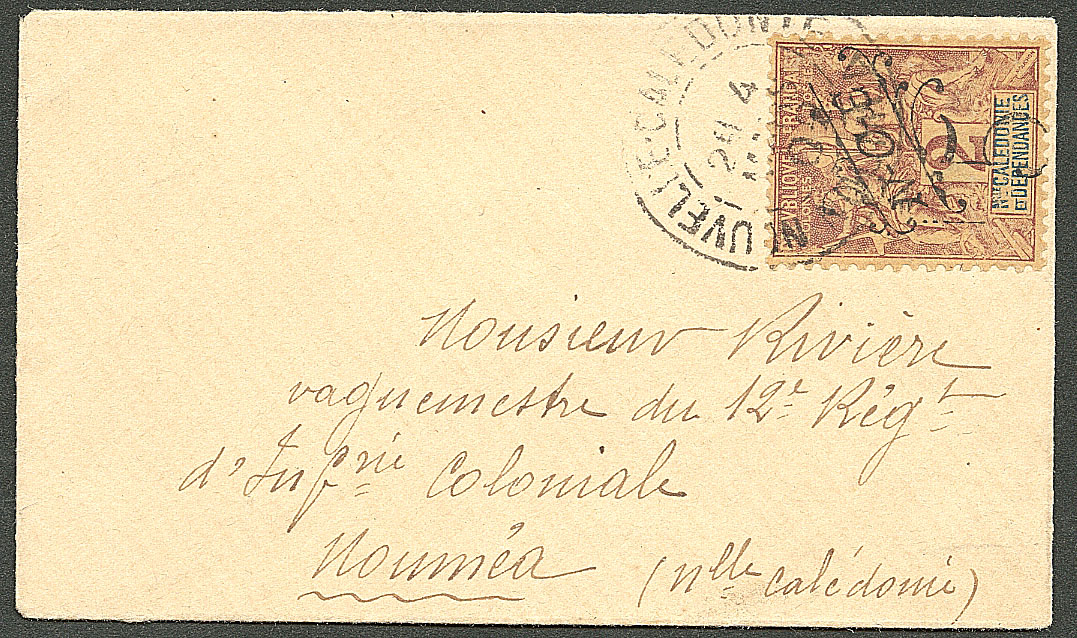 NOUVELLE-CALEDONIE
24
4
2
Nlle CALEDONIE
ET DEPENDANCES
Monsieur Rivière
vaguemestre du 12e Régt
d'Infrie Coloniale
Nouméa (Nlle Calédonie)